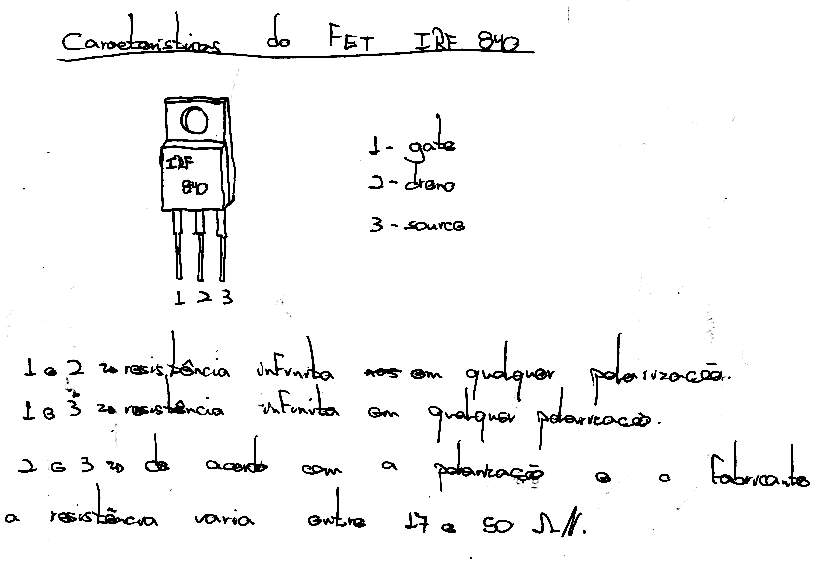 Características do FET IRF 840
IRF
840
1 2 3
1 - gate
2 - dreno
3 - source
1 e 2 => resistência infinita em qualquer polarização.
1 e 3 => resistência infinita em qualquer polarização.
2 e 3 => de acordo com a polarização e o fabricante
a resistência varia entre 17 e 50 Ω//.